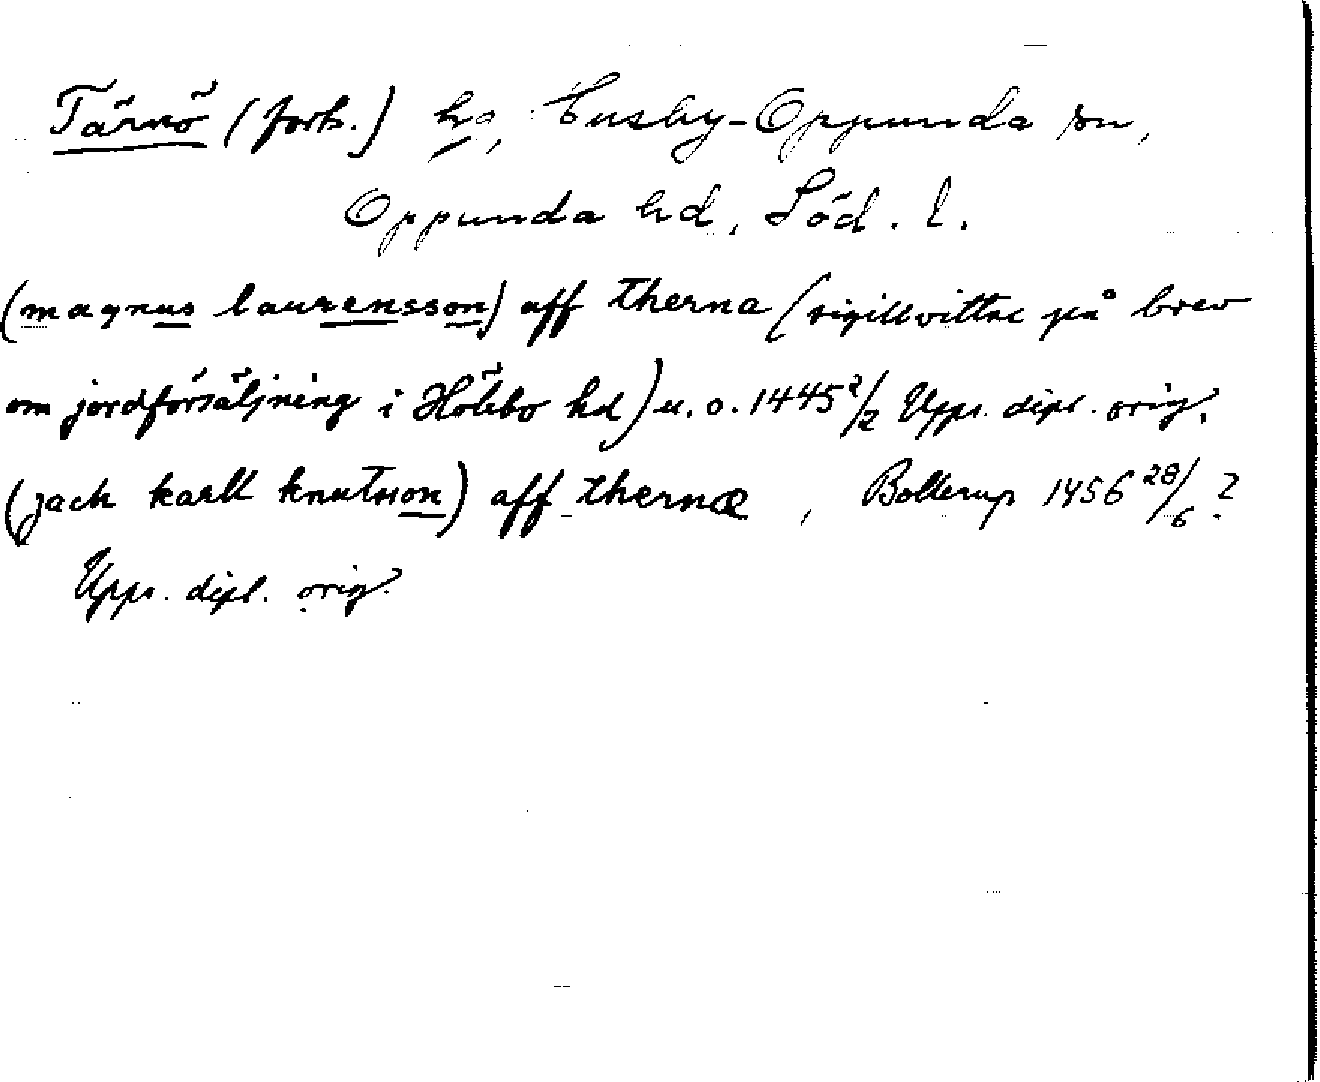 Tärnö (forts.) hg, Husby-Oppunda sn,
Oppunda hd, Söd. l.
(magnus laurensson) aff therna (sigillvittne på brev
om jordförsäljning i Hölebo hd) u. o. 1445 2/2 Upps. dipl. orig.
(jach karll knutsson) aff thernæ, Bollerup 1456 28/6 ?
Upps. dipl. orig.